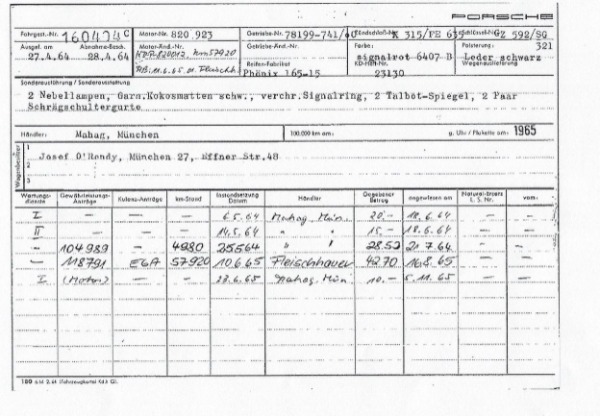 PORSCHE
Fahrgest.-Nr. 160474 C Motor-Nr. 820.923 Getriebe-Nr. 78199-741/ K 315/FE GZ 592/SG
Ausgel. am Abnahme-Besch. Motor-Änd.-Nr. Getriebe-Änd.-Nr. Farbe: Polsterung: 321
27.4.64 28.4.64 km 57920 signalrot 6407 B Leder schwarz
Reifen-Fabrikat KD-Heft-Nr. Wagenauslieferung
Phönix 165-15 23130
Sonderausführung / Sonderausstattung
2 Nebellampen, Garn.Kokosmatten schw., verchr.Signalring, 2 Talbot-Spiegel, 2 Paar
Schrägschultergurte
Händler: Mahag, München 100.000 km am: g. Uhr / Plakette am: 1965
Wagenbesitzer
1 Josef O'Rendy, München 27, Effner Str.48
2
3
Wartungs-dienste Gewährleistungs-Anträge Kulanz-Anträge km-Stand Instandsetzung Datum Händler Gegebener Betrag angewiesen am Natural-Ersatz L. S. Nr. vom:
I - - - 6.5.64 Mahag. Mün. 20.- 18.6.64 - -
II - - - 14.5.64 " " 15.- 18.6.64 - -
- 104989 - 4980 25.5.64 " " 28.52 21.7.64 - -
- 118791 E6A 57920 10.6.65 Fleischhauer 42.70 16.8.65 - -
I (Motor) - - 28.6.65 Mahag. Mün. 10.- 5.11.65 - -